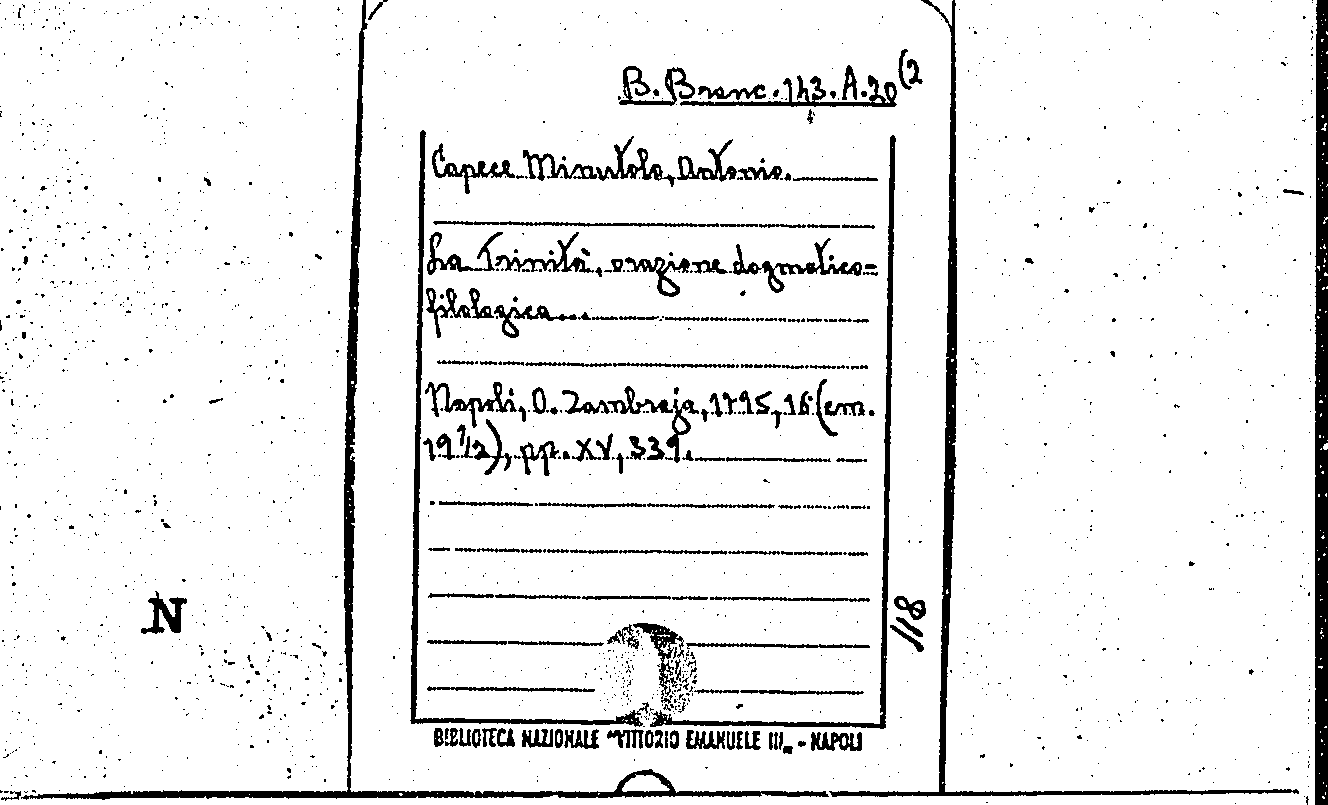 B. Branc. 143. A. 20 (2
Capece Minutolo, Antonio.
La Trinità, orazione dogmatico-
filologica...
Napoli, O. Zambraja, 1795, 16 (cm.
19 1/2), pp. XV, 339.
118
N
BIBLIOTECA NAZIONALE "VITTORIO EMANUELE III„ - NAPOLI